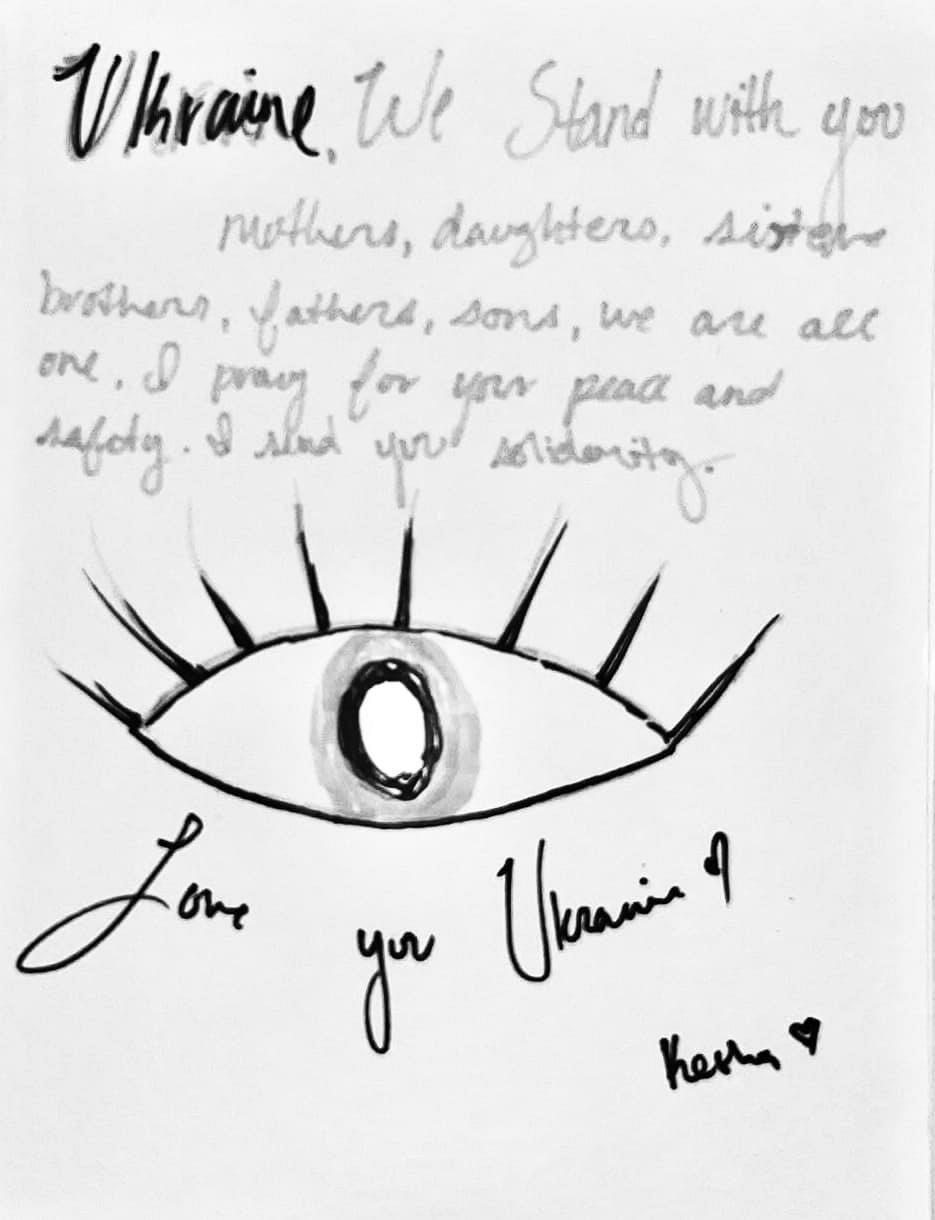 Ukraine. We Stand with you
mothers, daughters, sisters
brothers, fathers, sons, we are all
one. I pray for your peace and
safety. I send you solidarity.
Love you Ukraine
Kesha